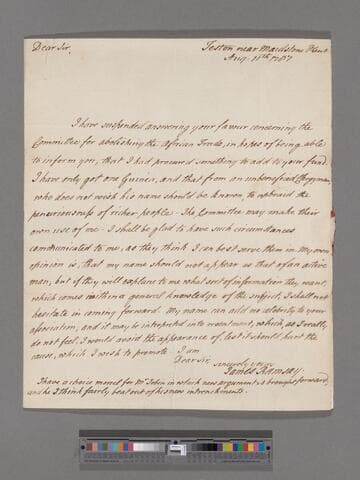 Dear Sir,
Teston near Maidstone Kent
Aug. 11th 1787
I have suspended answering your favour concerning the
Committee for abolishing the African Trade, in hopes of being able
to inform you, that I had procured something to add to your fund.
I have only got one Guinea, and that from an unbeneficed Clergyman,
who does not wish his name should be known to upbraid the
penuriousness of richer people. The Committee may make their
own use of me. I shall be glad to have such circumstances
communicated to me, as they think I can best serve them in. My own
opinion is, that my name should not appear as that of an active
man, but if they will explain to me what sort of information they want,
which comes within a general knowledge of the subject, I shall not
hesitate in coming forward. My name can add no celebrity to your
association, and it may be interpreted into resentment, which, as I really
do not feel, I would avoid the appearance of, lest it should hurt the
cause, which I wish to promote. I am
Dear Sir,
sincerely yours
James Ramsay.
I have a choice morsel for Mr Tobin in which new argument is brought forward,
and he I think fairly beat out of his new intrenchments.